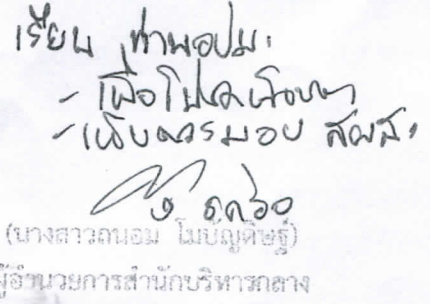 เรียน ท่านอปม.
- เพื่อโปรดพิจารณา
- เห็นควรมอบ สผส.
(นางสาวถนอม โมบัญดิษฐ์)
ผู้อำนวยการสำนักบริหารกลาง